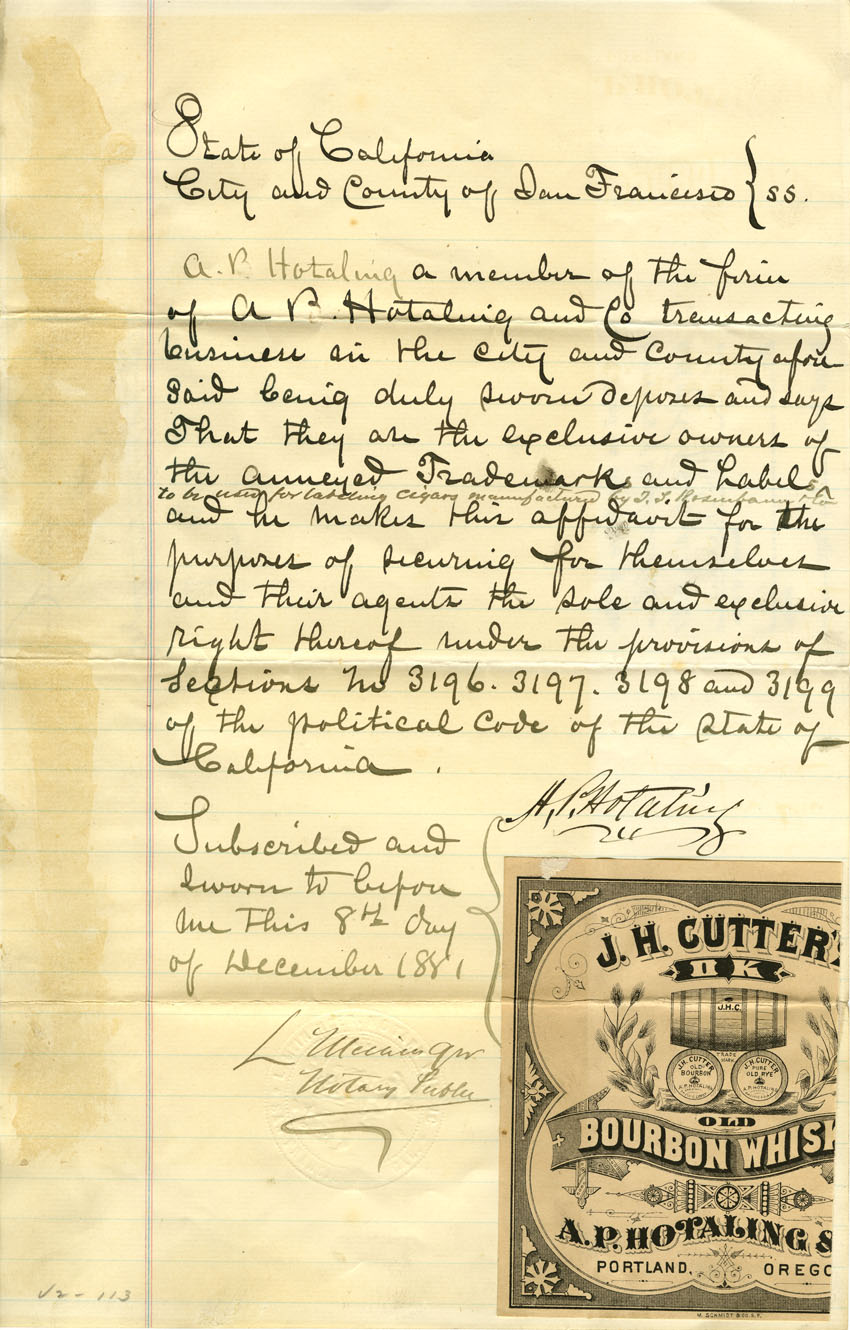 State of California
City and County of San Francisco } ss.
A. P. Hotaling a member of the firm
of A P. Hotaling and Co transacting
business in the city and County afore
said being duly sworn deposes and says
That they are the exclusive owners of
the annexed Trademark and Labels
to be used for labeling cigars manufactured by S. S. Rosenbaum & Co
and he makes this affidavit for the
purposes of securing for themselves
and their agents the sole and exclusive
right thereof under the provisions of
Sections No 3196. 3197. 3198 and 3199
of the political Code of the State of
California.
A. P. Hotaling
Subscribed and
sworn to before
me this 8th day
of December 1881
L
Notary Public
J. H. CUTTER'S
O K
J.H.C.
TRADE
MARK
J.H. CUTTER
OLD
BOURBON
A.P. HOTALING
J.H. CUTTER
PURE
OLD RYE
A.P. HOTALING
OLD
BOURBON WHISK
A. P. HOTALING &
PORTLAND, OREGO
M. SCHMIDT & CO. S.F.
V2-113